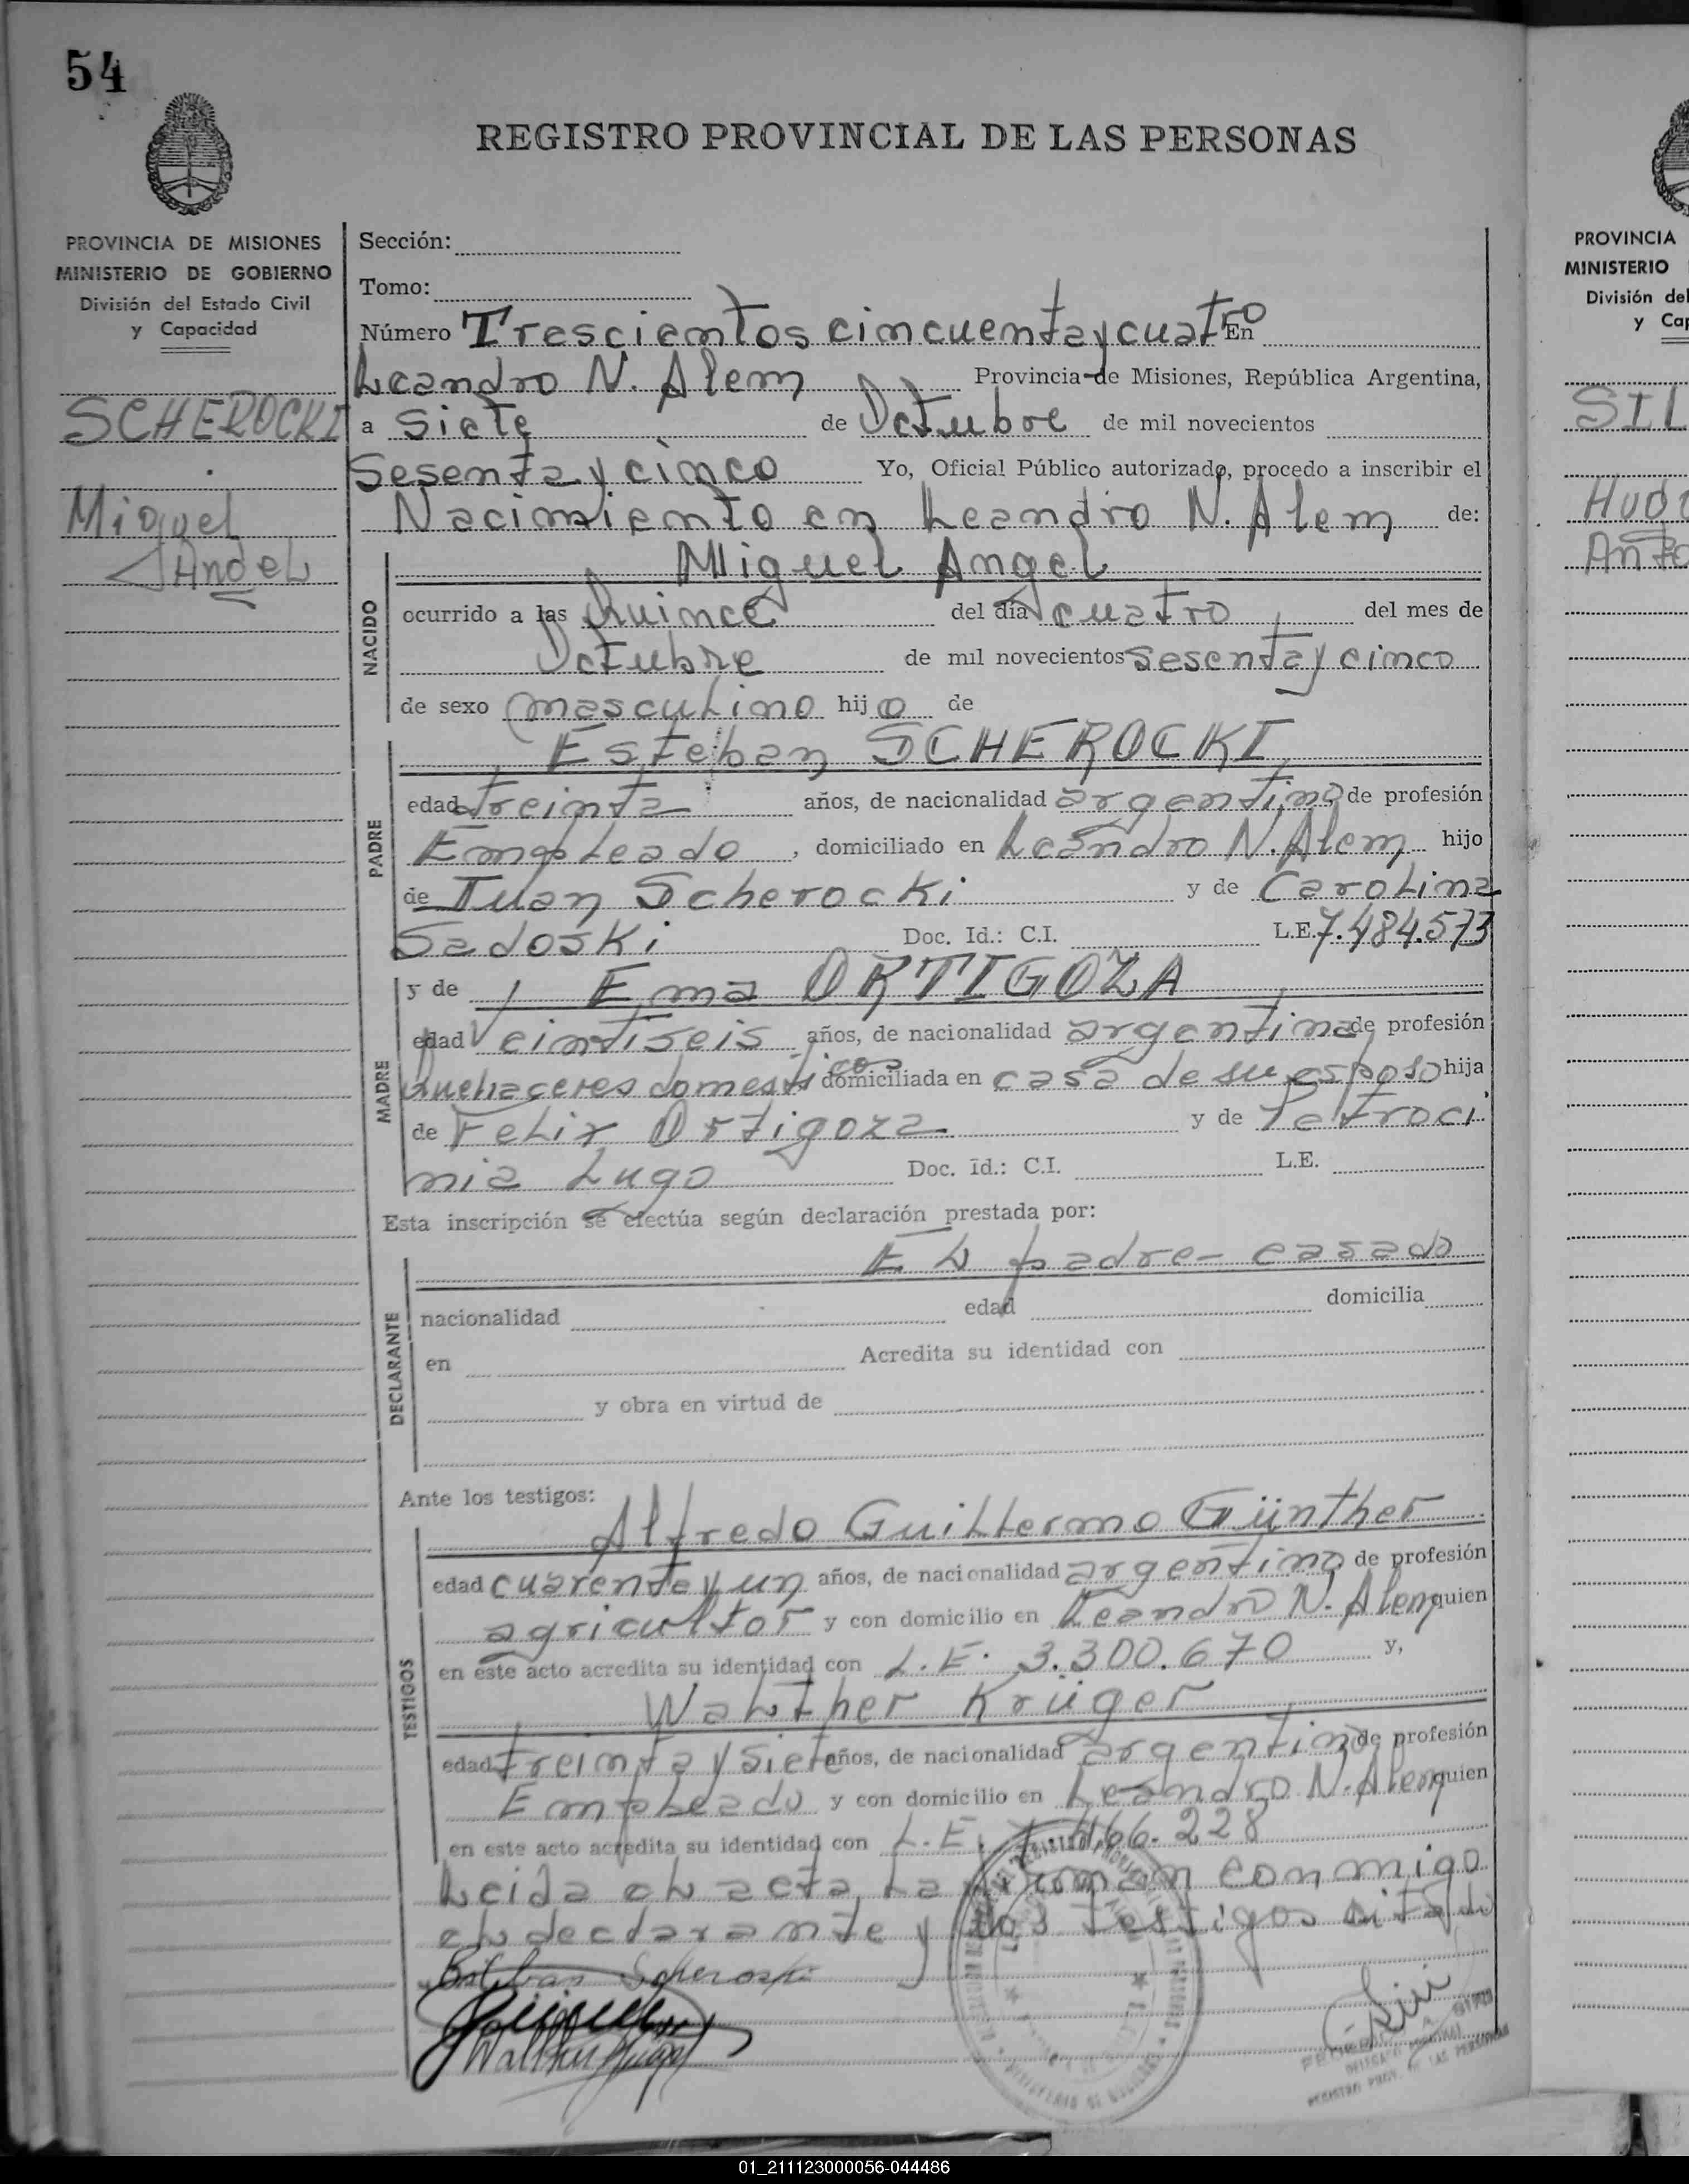 54
REGISTRO PROVINCIAL DE LAS PERSONAS
PROVINCIA DE MISIONES
MINISTERIO DE GOBIERNO
División del Estado Civil
y Capacidad
SCHEROCKI
Miguel
Angel
Sección:
Tomo:
Número Trescientos cincuenta y cuatro En
Leandro N. Alem Provincia de Misiones, República Argentina,
a Siete de Octubre de mil novecientos
Sesenta y cinco Yo, Oficial Público autorizado, procedo a inscribir el
Nacimiento en Leandro N. Alem de:
Miguel Angel
NACIDO
ocurrido a las Quince del día cuatro del mes de
Octubre de mil novecientos Sesenta y cinco
de sexo masculino hijo de
PADRE
Esteban SCHEROCKI
edad treinta años, de nacionalidad argentino de profesión
Empleado, domiciliado en Leandro N. Alem hijo
de Juan Scherocki y de Carolina
Sadoski Doc. Id.: C.I. L.E. 7.484.573
MADRE
y de Ema ORTIGOZA
edad Veintiseis años, de nacionalidad argentina de profesión
Quehaceres domesticos domiciliada en casa de su esposo hija
de Felix Ortigoza y de Petroci
nia Lugo Doc. Id.: C.I. L.E.
Esta inscripción se efectúa según declaración prestada por:
DECLARANTE
El padre- casado
nacionalidad edad domicilia
en Acredita su identidad con
y obra en virtud de
Ante los testigos:
TESTIGOS
Alfredo Guillermo Günther
edad cuarenta y un años, de nacionalidad argentino de profesión
agricultor y con domicilio en Leandro N. Alem quien
en este acto acredita su identidad con L.E. 3.300.670 y,
Walther Krüger
edad treinta y siete años, de nacionalidad argentino de profesión
Empleado y con domicilio en Leandro N. Alem quien
en este acto acredita su identidad con L.E. 466.228
Leida el acta, la firman conmigo
el declarante y los testigos
Esteban Scherocki
Walther Krüger
REGISTRO PROV. DE LAS PERSONAS
PROVINCIA
MINISTERIO
División del
y Cap
SIL
Hugo
Anto
01_211123000056-044486